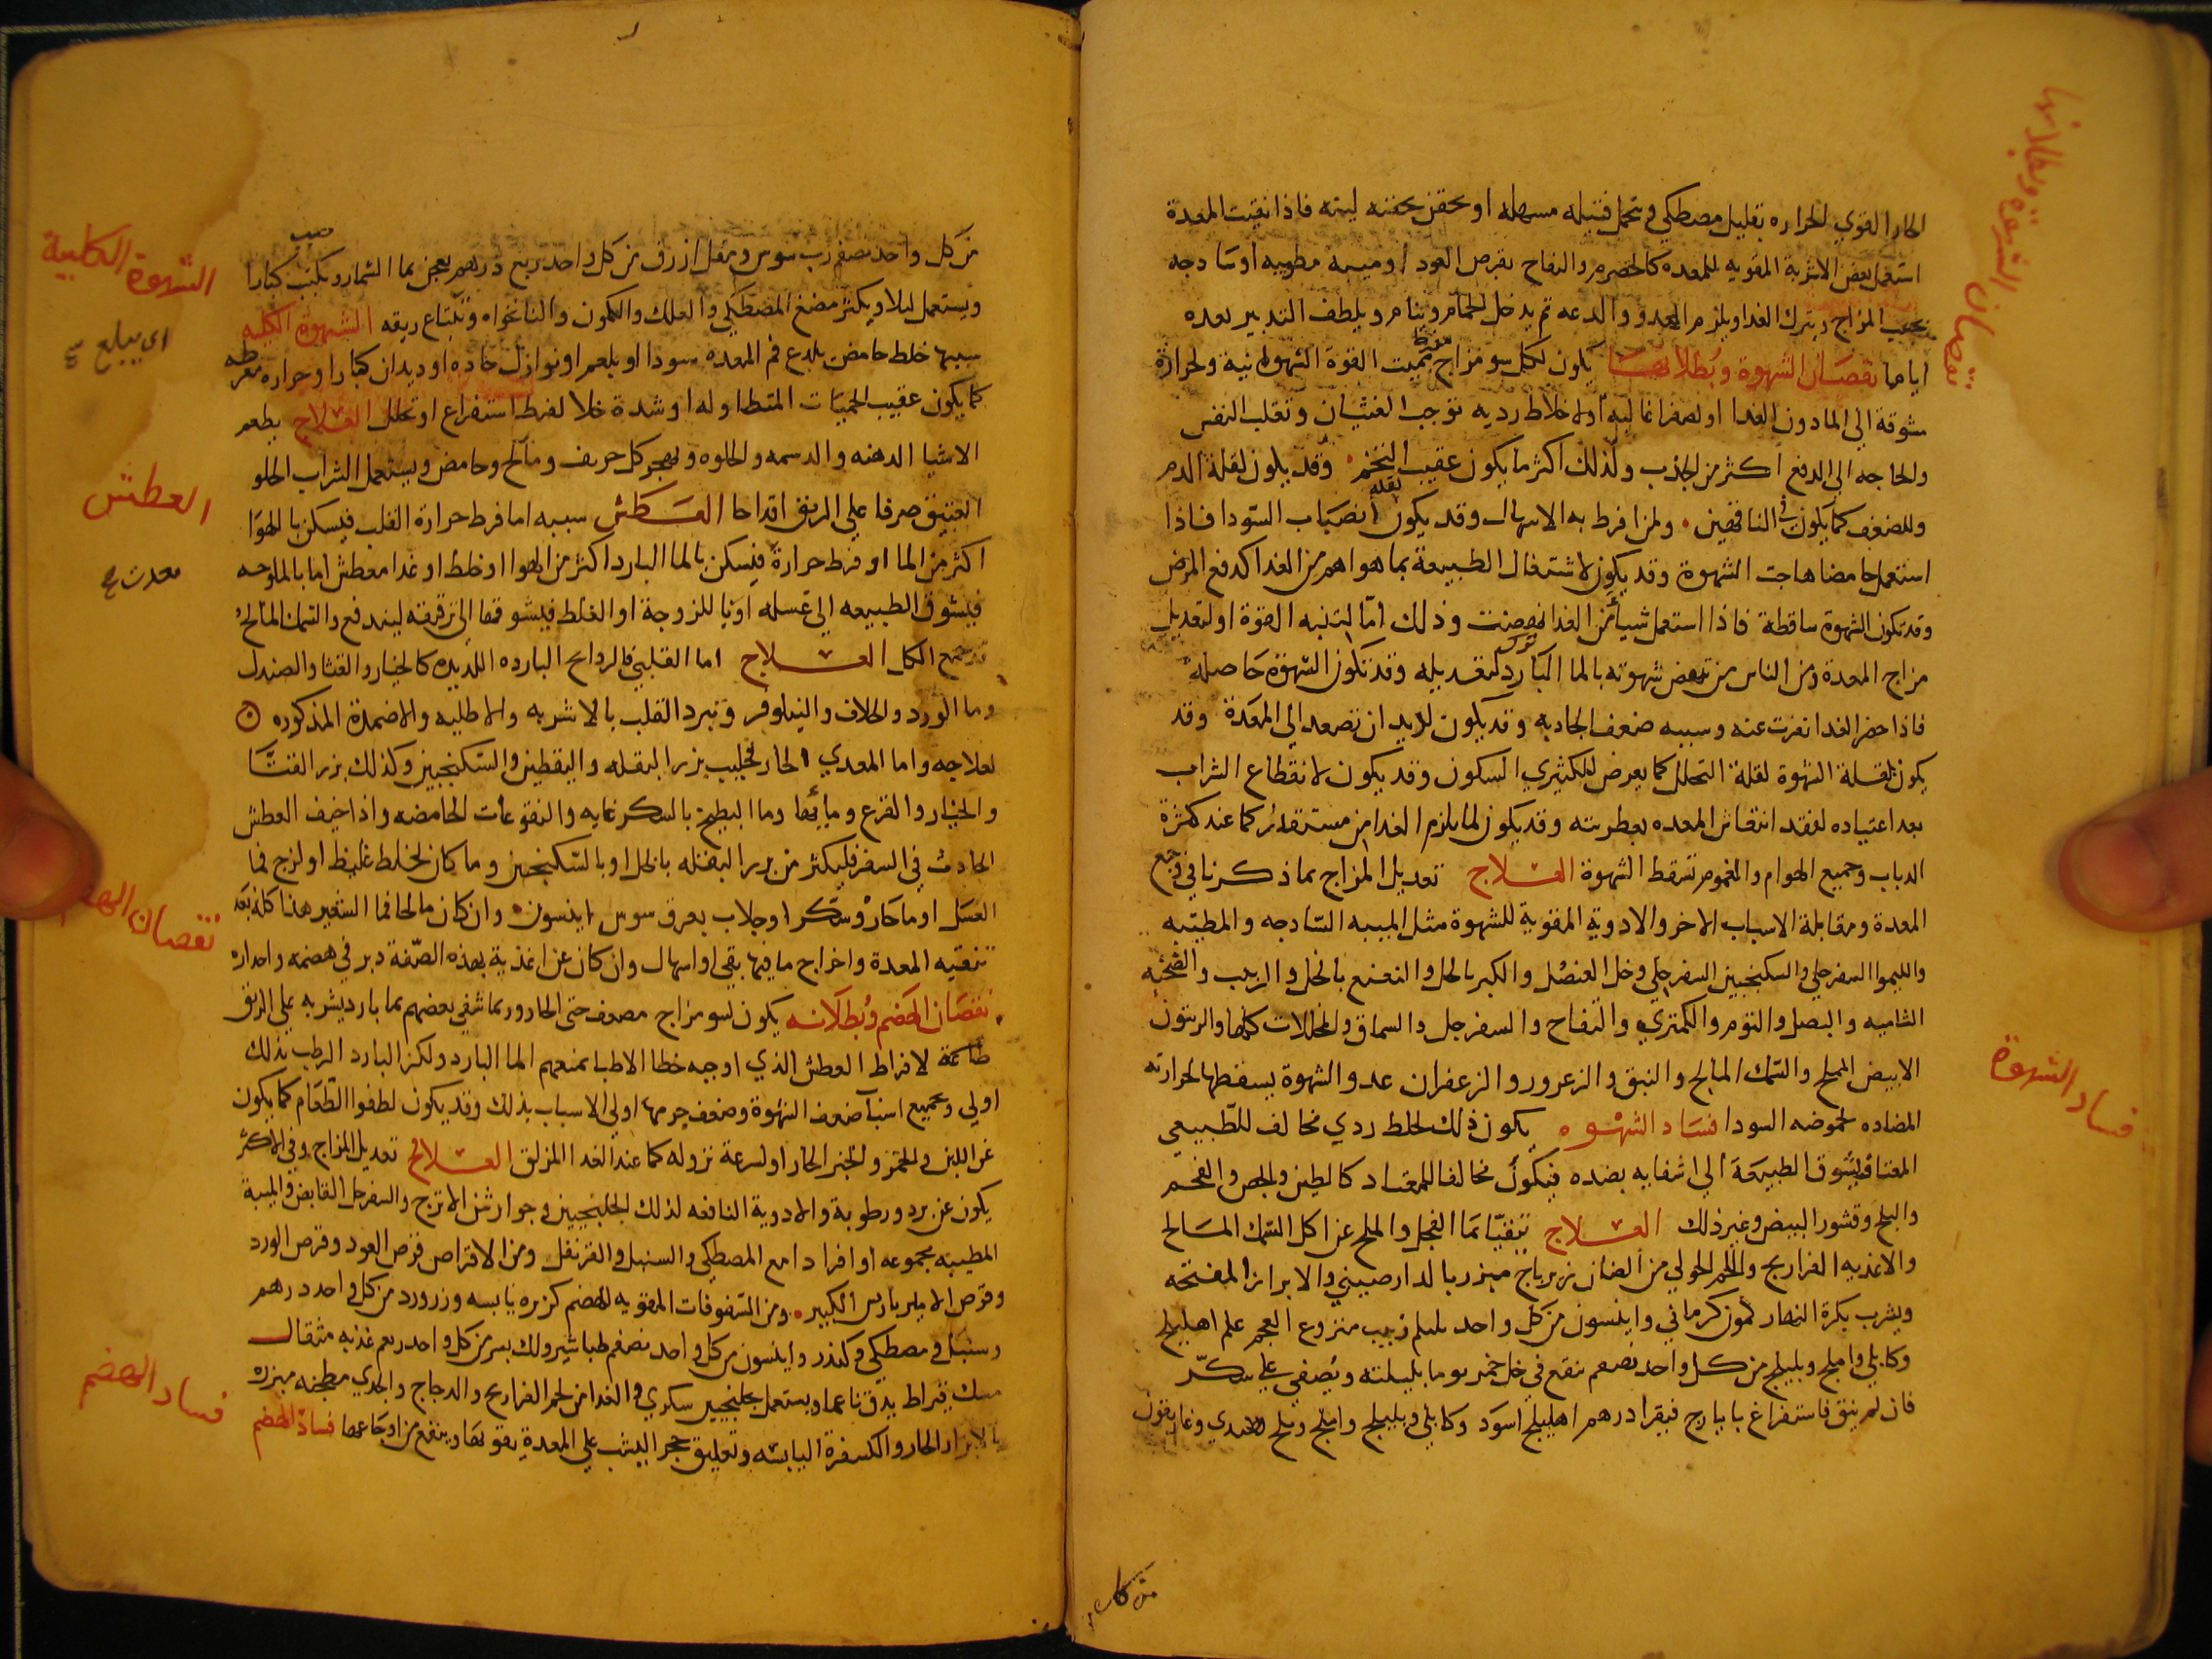 نقصان الشهوة وبطلانها
الحار القوي الحراره بقليل مصطكي وتحمل فتيله مسهله او يحقن بحقنه لينه فاذا نقيت المعدة
استعمل بعض الاشربة المقويه للمعده كالحصرم والتفاح بقرص العود او ميبه مطيبه او سادجه
بحسب المزاج ويترك الغدا ويلزم الهدو والدعه ثم يدخل الحمام وينام ويلطف التدبير بعده
اياما نقصان الشهوة وبطلانها يكون لكل سو مزاج مفرط يميت القوة الشهوانية ولحرارة
مشوقة الي الما دون الغدا او لصفرا غالبه او لاخلاط رديه توجب الغثيان وتقلب النفس
والحاجه الي الدفع اكثر من الجذب ولذلك اكثر ما يكون عقيب التخم وقد يكون لقلة الدم
وللضعف كما يكون في الناقهين ولمن افرط به الاسهال وقد يكون لقلة انصباب السودا فاذا
استعمل حامضا هاجت الشهوة وقد يكون لاشتغال الطبيعة بما هو اهم من الغدا كدفع المرض
وقد تكون الشهوة ساقطة فاذا استعمل شيأ من الغدا نهضت وذلك اما لتنبه القوة او لتعديل
مزاج المعدة ومن الناس من تنهض شهوته بالما البارد لتعديله وقد تكون الشهوة حاصلة
فاذا حضر الغدا نفرت عنه وسببه ضعف الجاذبه وقد يكون لديدان تصعد الي المعدة وقد
يكون لقلة الشهوة لقلة التحلل كما يعرض للكثيري السكون وقد يكون لانقطاع الشراب
بعد اعتياده لفقد انتعاش المعده بعطريته وقد يكون لما يلزم الغدا من مستقذر كما عند كثرة
الدباب وجميع الهوام والغموم تسقط الشهوة العلاج تعديل المزاج بما ذكرنا في وجع
المعدة ومقابلة الاسباب الاخر والادوية المقوية للشهوة مثل الميبه السادجه والمطيبه
والليموا السفرجلي والسكنجبين السفرجلي وخل العنصل والكبر بالخل والنعنع بالخل والزبيب والصحنه
الشاميه والبصل والثوم والكمتري والتفاح والسفرجل والسماق والمخللات كلها والزيتون
الابيض المملح والسمك المالح والنبق والزعرور والزعفران عدو الشهوة يسقطها لحرارته
المضاده لحموضه السودا فساد الشهوه يكون ذلك لخلط ردي مخالف للطبيعي
المعتاد فيشوق الطبيعة الي اشفايه بضده فيكون مخالفا للمعتاد كالطين والجص والفحم
والبلح وقشور البيض وغير ذلك العلاج تنقيا بما الفجل والملح عن اكل السمك المالح
والاغذيه الفراريج واللحم الحولي من الضان زيرباج مبزر بالدارصيني والابرار المفتحه
ويشرب بكرة النهار كمون كرماني واينسون من كل واحد زبيب منزوع العجم اهليلج
وكابلي واملج وبليلج من كل واحد نصف ينقع في خل خمر يوما بليلته ويصفي علي سكر
فان لم ينق فاستفراغ بايارج فيقرا درهم اهليلج اسود وكابلي وبليلج واملج وملح هندي وغاريقون
فساد الشهوة
من كل واحد نصف رب سوس ومقل ازرق من كل واحد ربع درهم يعجن بما الشمار ويكتب كبارا
ويستعمل ليلا ويكثر مضغ المصطكي والعلك والكمون والنانخواه وتبتلع ريقه الشهوة الكلبيه
سببها خلط حامض يلدع فم المعده سودا او بلغم او نوازل حاده او ديدان كبار او حراره مفرطه
كما يكون عقيب الحميات المتطاوله او شدة خلا لفرط استفراغ او تحلل العلاج يطعم
الاشيا الدهنه والدسمه والحلوه ويهجر كل حريف ومالح وحامض ويستعمل الشراب الحلو
العتيق صرفا علي الريق اقداحا العطش سببه اما فرط حرارة القلب فيسكن بالهوا
اكثر من الما او فرط حرارة فيسكن بالما البارد اكثر من الهوا او خلط او غدا معطش اما بالملوحه
فيشوق الطبيعه الي غسله او باللزوجة او الغلظ فيشوقها الي ترقيقه ليندفع والسمك المالح
يجمع الكل العلاج اما القلبي فالروايح البارده اللديده كالخيار والقثا والصندل
وما الورد والخلاف والنيلوفر وتبرد القلب بالاشربه والاطليه والاضمدة المذكوره
لعلاجه واما المعدي الحار فحليب بزر البقله واليقطين والسكنجبين وكذلك بزر القثا
والخيار والقرع ومايها وما البطيخ بالسكر غايه والنقوعات الحامضه واذا خيف العطش
الحادث في السفر فليكثر من بزر البقله بالخل او بالسكنجبين وما كان لخلط غليظ او لزج فما
العسل او ما حار وسكر او جلاب بعرق سوس اينسون وان كان مالحا فما الشعير هذا كله بعد
تنقيه المعدة واخراج ما فيها بقي او اسهال وان كان عن اغذية بهذه الصفة دبر في هضمه واحداره
نقصان الهضم وبطلانه يكون لسو مزاج مضعف حتي الحار وربما شفي بعضهم بما بارد يشربه علي الريق
طاعة لافراط العطش الذي اوجبه خطا الاطبا بمنعهم الما البارد ولكن البارد الرطب بذلك
اولي وجميع اسباب ضعف الشهوة وضعف جرمها اولي الاسباب بذلك وقد يكون لطفوا الطعام كما يكون
عن اللبن والخمر والخبز الحار او لسرعة نزوله كما عند الغدا المزلق العلاج تعديل المزاج وفي الاكثر
يكون عن برد ورطوبة والادوية النافعه لذلك الجلنجبين وجوارشن الاترج والسفرجل القابض والميبة
المطيبه مجموعه او افرادا مع المصطكي والسنبل والقرنفل ومن الاقراص قرص العود وقرص الورد
وقرص الامبرباريس الكبير ومن السفوفات المقويه للهضم كزبره يابسه وزر ورد من كل واحد درهم
وسنبل ومصطكي وكندر واينسون من كل واحد نصف طباشير ولك بسر من كل واحد ربع مثقال
مسك قيراط يدق ناعما ويستعمل بجلنجبين سكري والغدا من لحم الفراريج والدجاج والجدي مطجنه مبزره
بالابزار الحار والكسفرة اليابسه وتعليق حجر اليشب علي المعدة يقويها وينفع من اوجاعها فساد الهضم
الشهوة الكلبية
اى يبلع
العطش
معدن
نقصان الهضم
فساد الهضم